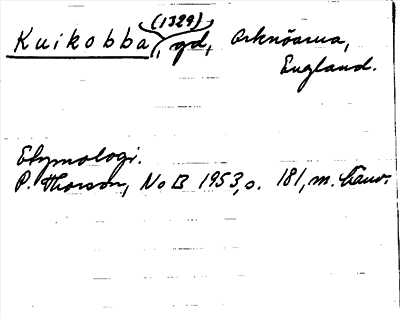 (1329)
Kuikobba, gd, Orknöarna,
England.
Etymologi.
P. Thorson, NoB 1953, s. 181, m. hänv.